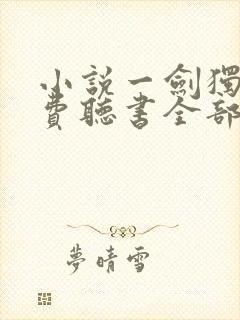 小說一劍獨
費聽書全部
夢晴雪